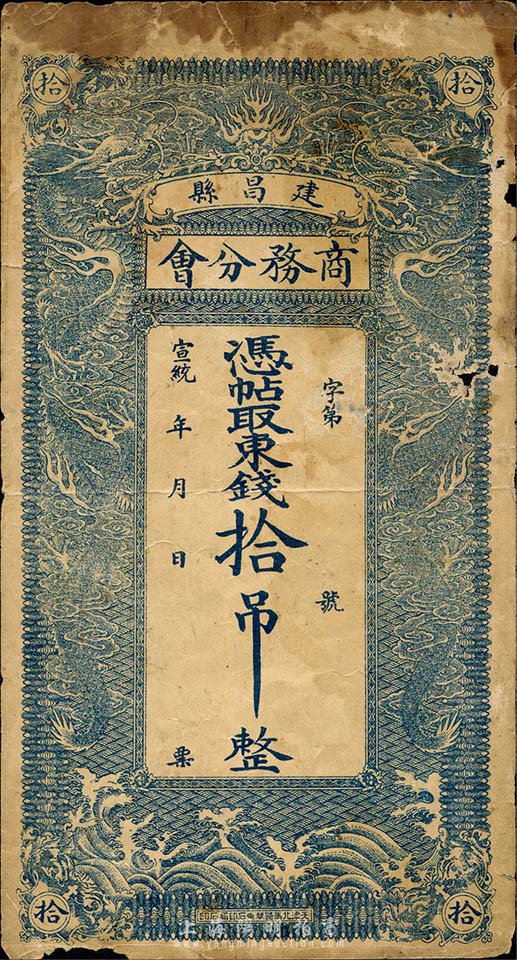 拾
拾
建昌縣
商務分會
字第 號
憑帖取東錢拾吊整
宣統 年 月 日 票
拾
拾
www.yangmingauction.com